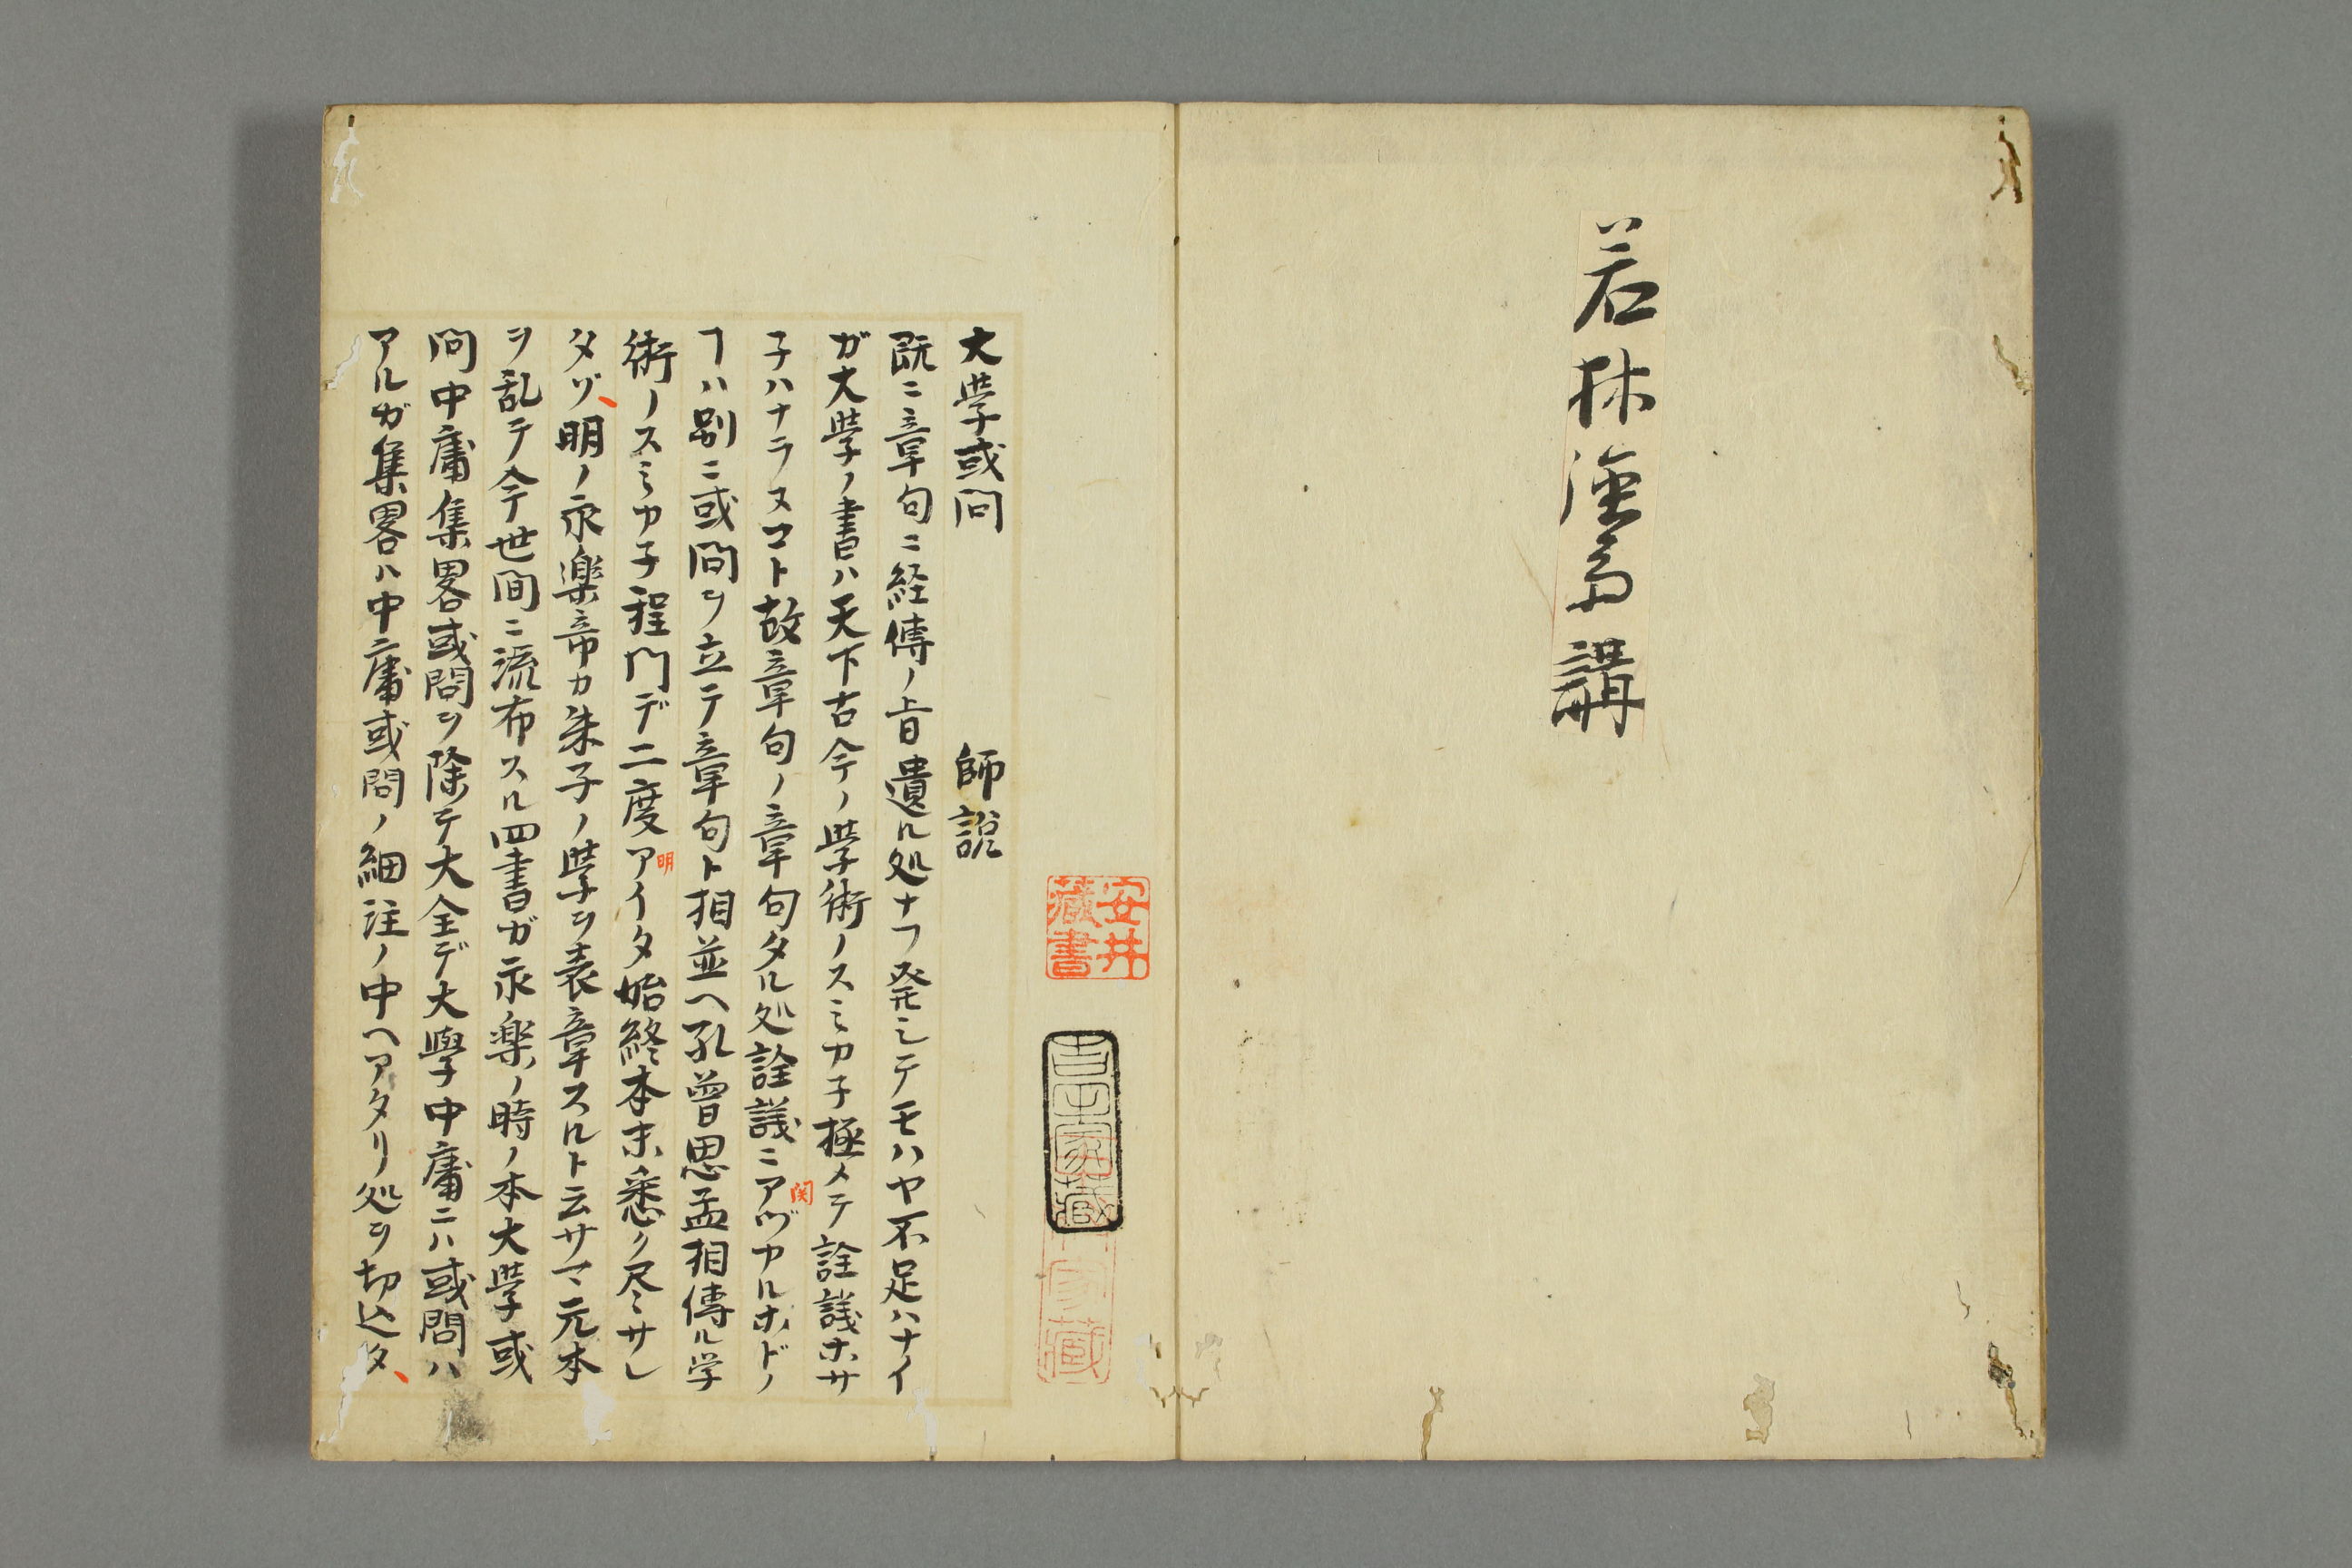 若林強斎講
大学或問　師説
既ニ章句ニ経傳ノ旨遺ル処ナフ発ミテモハヤ不足ハナイ
ガ大学ノ書ハ天下古今ノ学術ノスミカ子極メテ詮議ホサ
子ハナラヌコト故章句ノ章句タル処詮議ニアヅカルホドノ
ヿハ別ニ或問ヲ立テ章句ト相並ヘ孔曽思孟相傳ル学
術ノスミカ子程門デ二度アイタ始終本末悉ク尽サレ
タゾ明ノ永楽帝カ朱子ノ学ヲ表章スルト云サマ元本
ヲ乱テ今世間ニ流布スル四書ガ永楽ノ時ノ本大学或
問中庸集畧或問ヲ除テ大全デ大學中庸ニハ或問ハ
アルガ集畧ハ中庸或問ノ細注ノ中ヘアタリ処ヲ切込タ
関
明
安井
蔵書
家蔵
家蔵